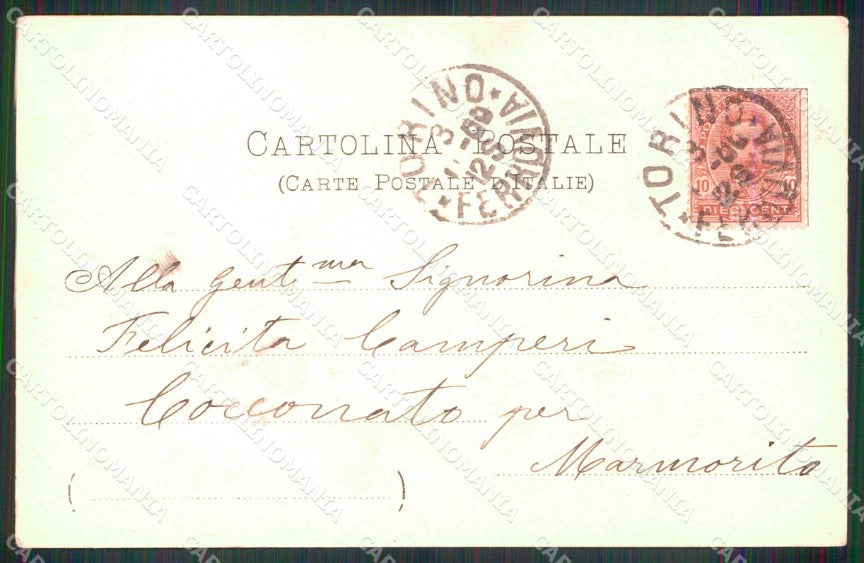 CARTOLINA POSTALE
(CARTE POSTALE D'ITALIE)
TORINO * FERROVIA *
TORINO * FERROVIA *
10 10
DIECI CENT
Alla Gent.ma Signorina
Felicita Camperi
Cocconato per
Marmorito
( )
CARTOLINOMANIA